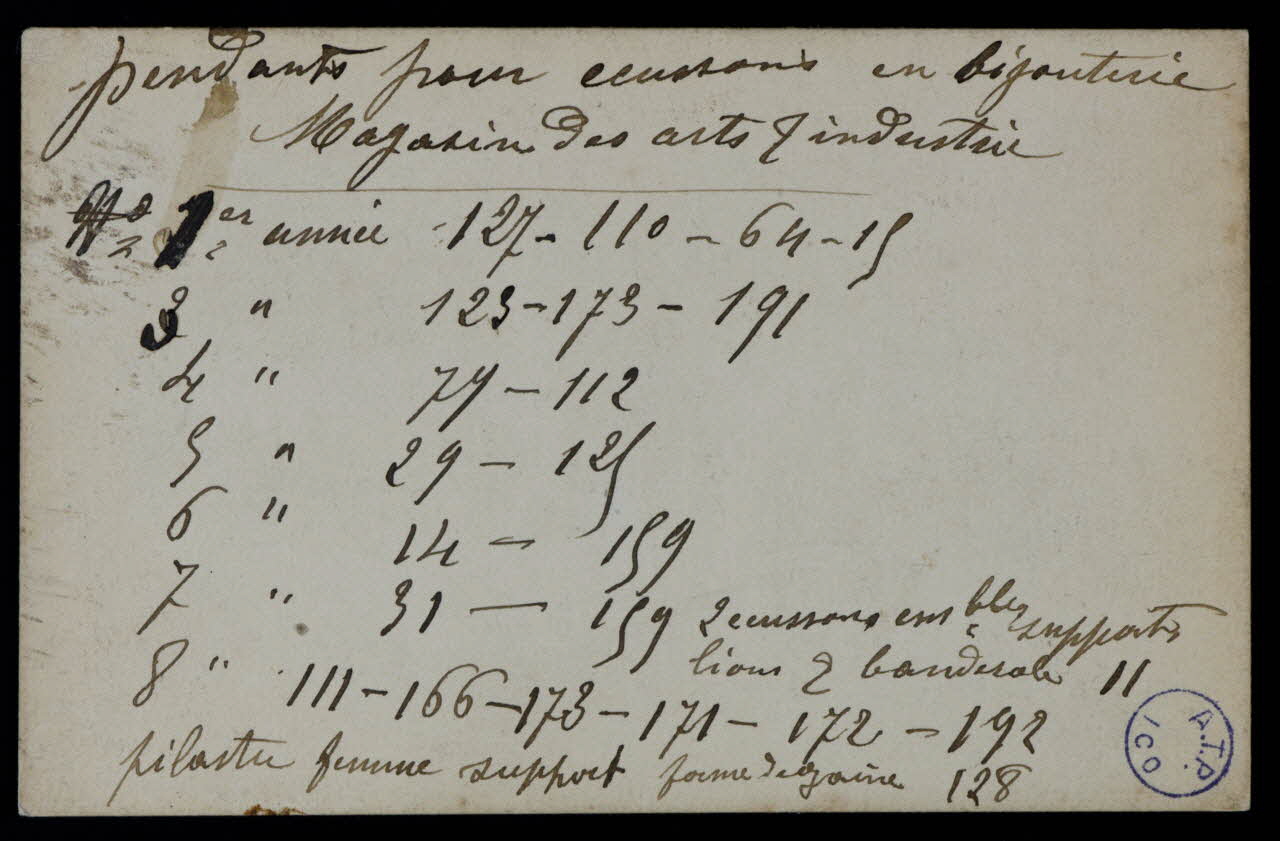 pendants pour ecussons en bijouterie
Magasin des arts & industrie
1er année 127 - 110 - 64 - 15
3 " 123 - 173 - 191
4 " 79 - 112
5 " 29 - 125
6 " 14 - 159
7 " 31 - 159 2 ecussons ensble supports
lions & banderole 11
8 " 111 - 166 - 173 - 171 - 172 - 192
pilastre femme support forme de gaine 128
A.T.P.
ICO